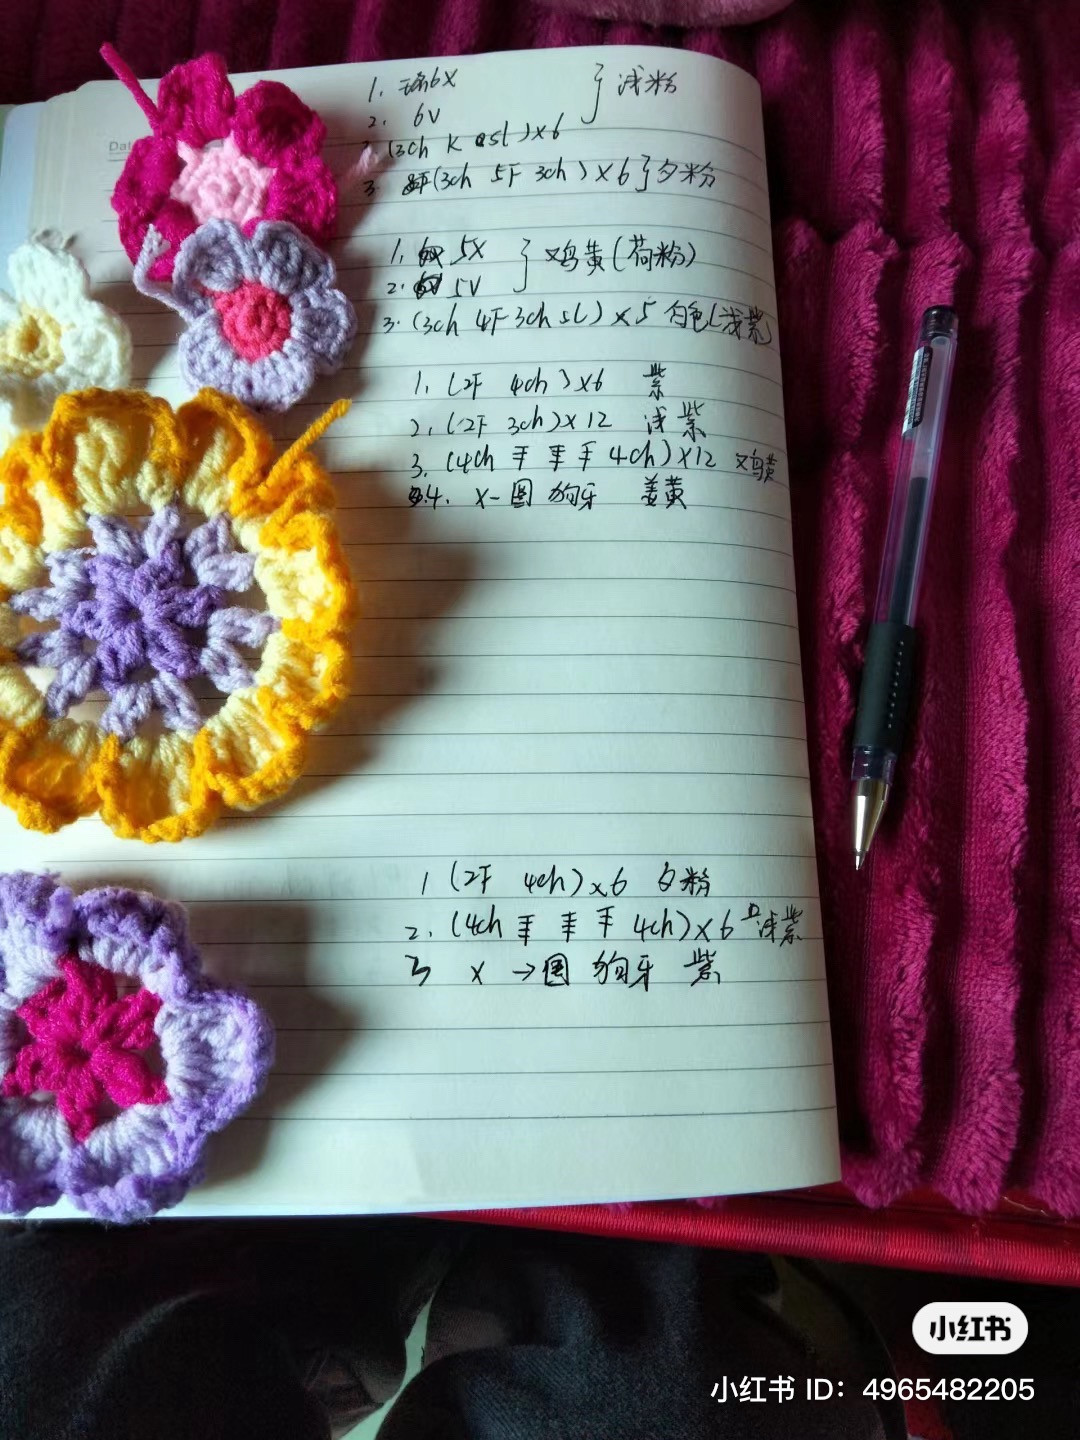 Dat
1. 环6X } 浅粉
2. 6V
(3ch k sl)×6
3. (3ch 5F 3ch)×6 } 夕粉
1. 5X } 鸡黄(荷粉)
2. 5V
3. (3ch 4F 3ch sl)×5 白色(浅紫)
1. (2F 4ch)×6 紫
2. (2F 3ch)×12 浅紫
3. (4ch 4ch)×12 鸡黄
4. X-圈 狗牙 姜黄
1 (2F 4ch)×6 夕粉
2. (4ch 4ch)×6 浅紫
3 X→圈 狗牙 紫
小红书
小红书 ID：4965482205